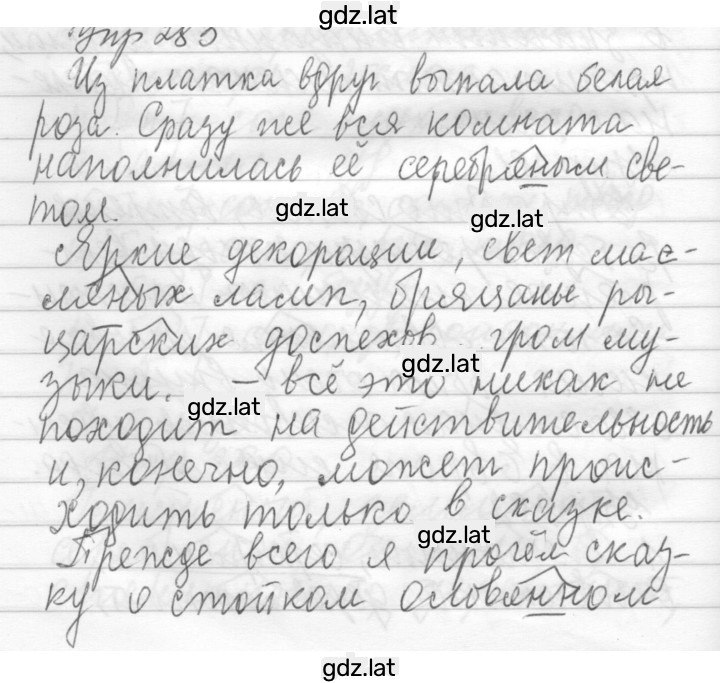 gdz.lat
Упр 283
Из платка вдруг выпала белая
роза. Сразу же вся комната
наполнилась её серебряным све-
том.
gdz.lat
gdz.lat
Яркие декорации, свет мас-
ляных ламп, бряцанье ры-
царских доспехов гром му-
gdz.lat
зыки. – всё это никак не
gdz.lat
походит на действительность
и, конечно, может проис-
ходить только в сказке.
gdz.lat
Прежде всего я прочёл сказ-
ку о стойком оловянном
gdz.lat